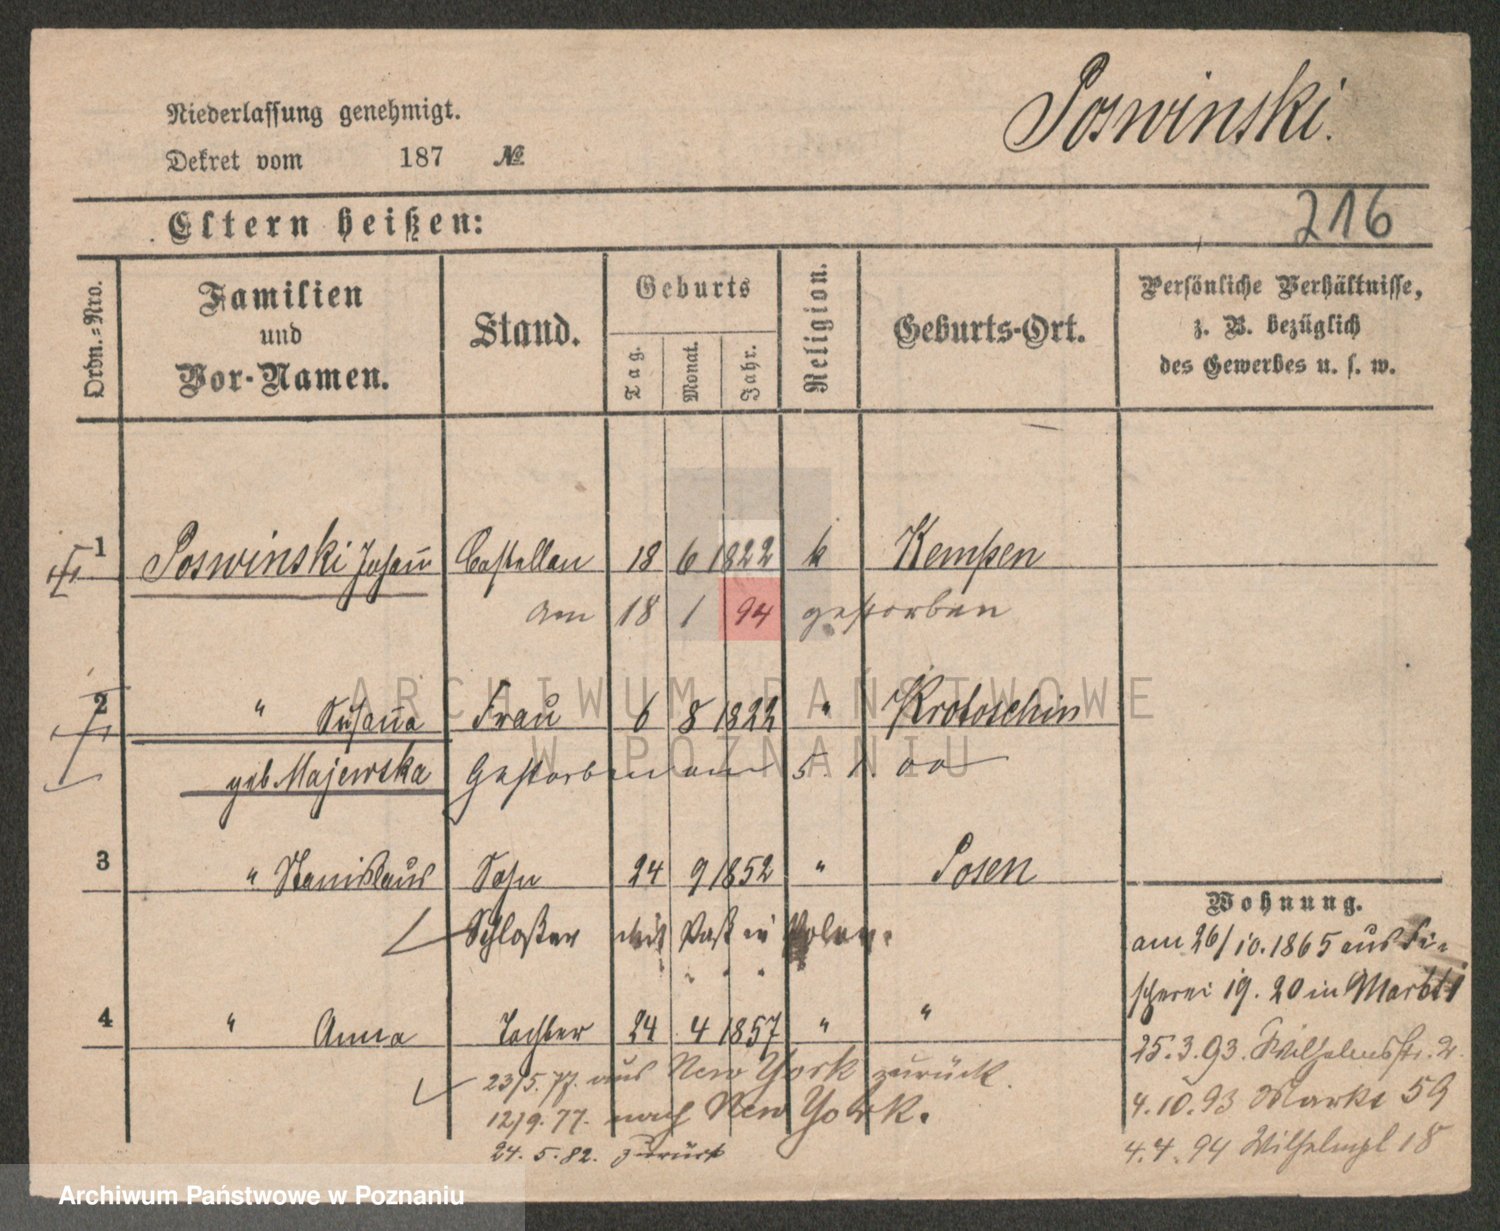 Niederlassung genehmigt.
Poswinski.
Dekret vom 187 №
Eltern heißen:
216
Ordn.-Nro.
Familien und Vor-Namen.
Stand.
Geburts
Tag.
Monat.
Jahr.
Religion.
Geburts-Ort.
Persönliche Verhältnisse,
z. B. bezüglich
des Gewerbes u. s. w.
1 Poswinski Johann Castellan 18 6 1822 k Kempen
am 18 1 94 gestorben
2 " Susanna Frau 6 8 1822 " Krotoschin
geb Majewska Gestorben am 5. 1. 00
3 " Stanislaus Sohn 24 9 1852 " Posen
Schlosser mit Pass in Polen.
4 " Anna Tochter 24 4 1857 " "
23/5. 77. aus New York zurück.
12/9. 77. nach New York.
24. 5. 82. zurück
Wohnung.
am 26/10. 1865 aus Fi-
scherei 19. 20 in Markt
25. 3. 93. Wilhelmsstr. 2.
4. 10. 93 Markt 59
4. 4. 94 Wilhelmpl 18
ARCHIWUM PAŃSTWOWE
W POZNANIU
Archiwum Państwowe w Poznaniu